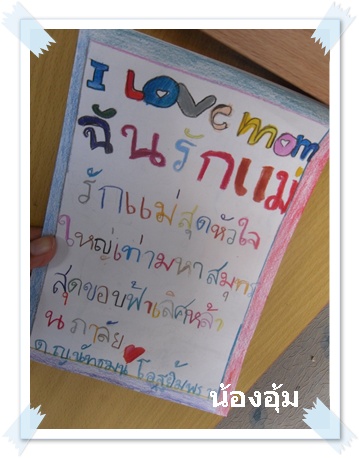 I LOVE mom
ฉันรักแม่
รักแม่สุดหัวใจ
ใหญ่เท่ามหาสมุทร
สุดขอบฟ้าเลิศหล้า
นภาลัย
ด.ญ.นัทธมน
น้องอุ้ม